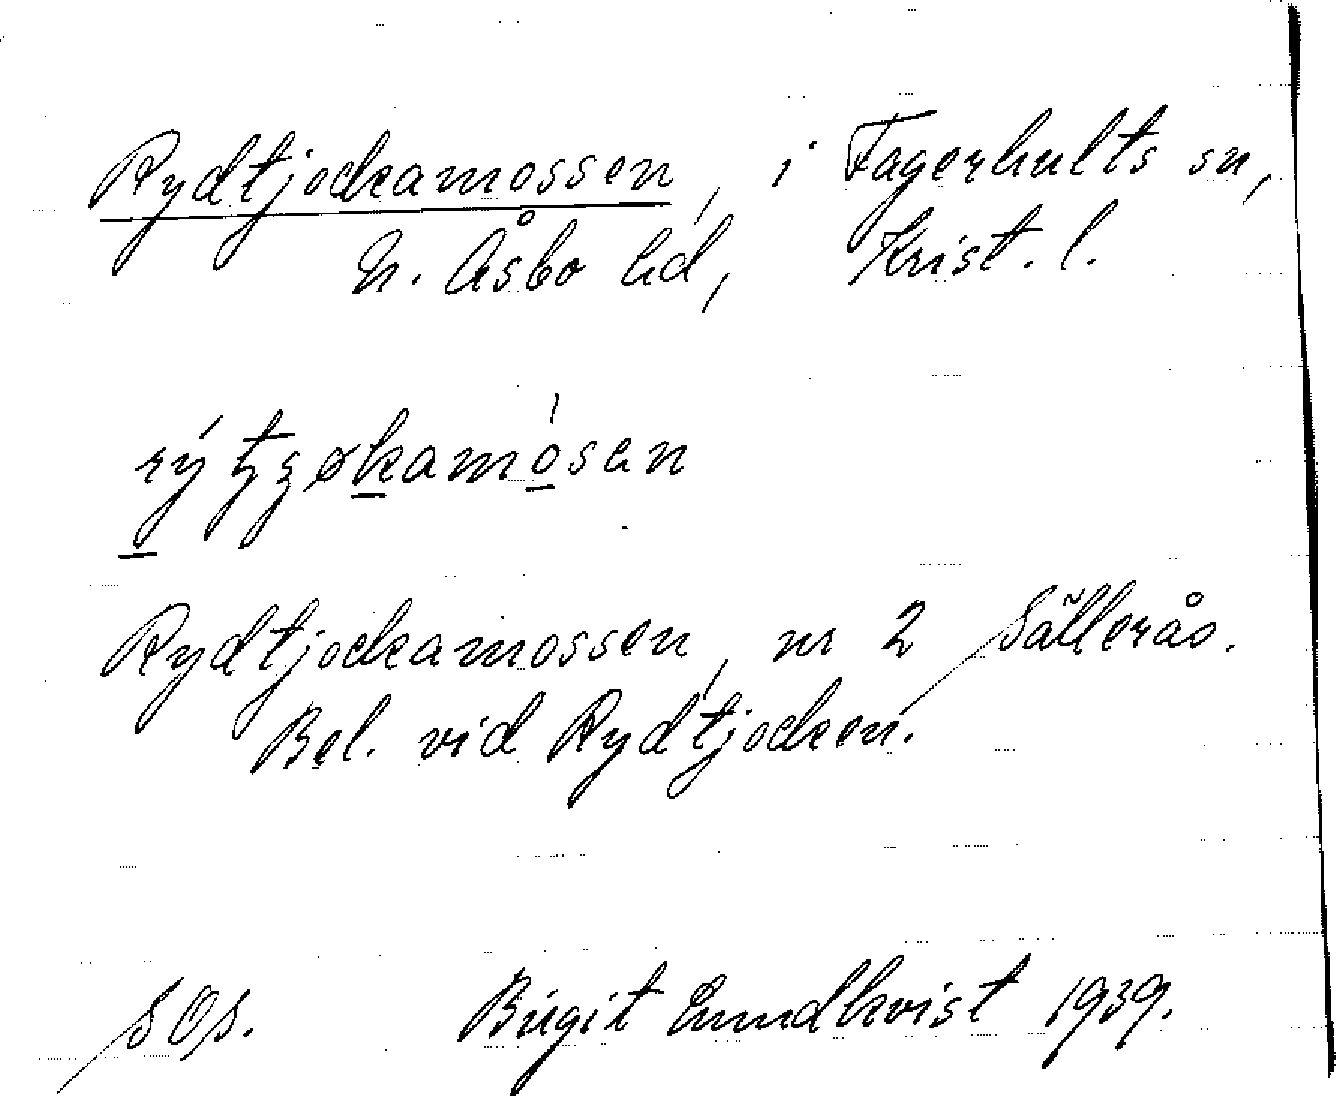 Rydtjockamossen, i Fagerhults sn,
N. Åsbo hd, Krist. l.
Rydtjockamossen, nr 2 Sällerås.
Bel. vid Rydtjocken.
Sǫs.
Birgit Lundkvist 1939.